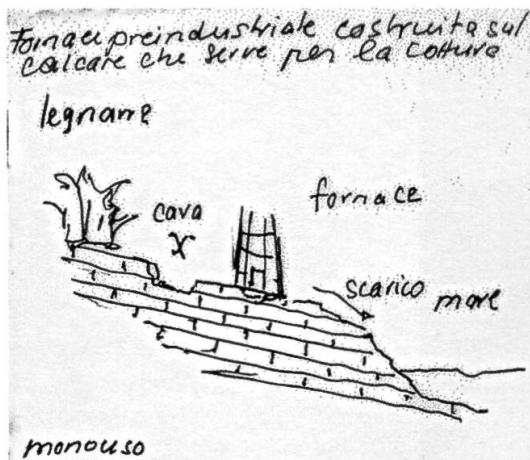 Fornace preindustriale costruita sul
calcare che serve per la cottura
legname
cava
X
fornace
scarico
mare
monouso